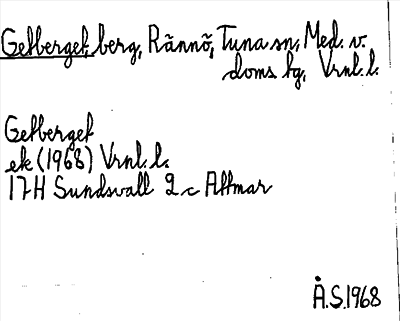 Getberget, berg, Rännö, Tuna sn, Med. v.
doms hg, Vrnl. l.
Getberget
ek (1968) Vrnl. l.
17H Sundsvall 2 c Attmar
Å.S. 1968